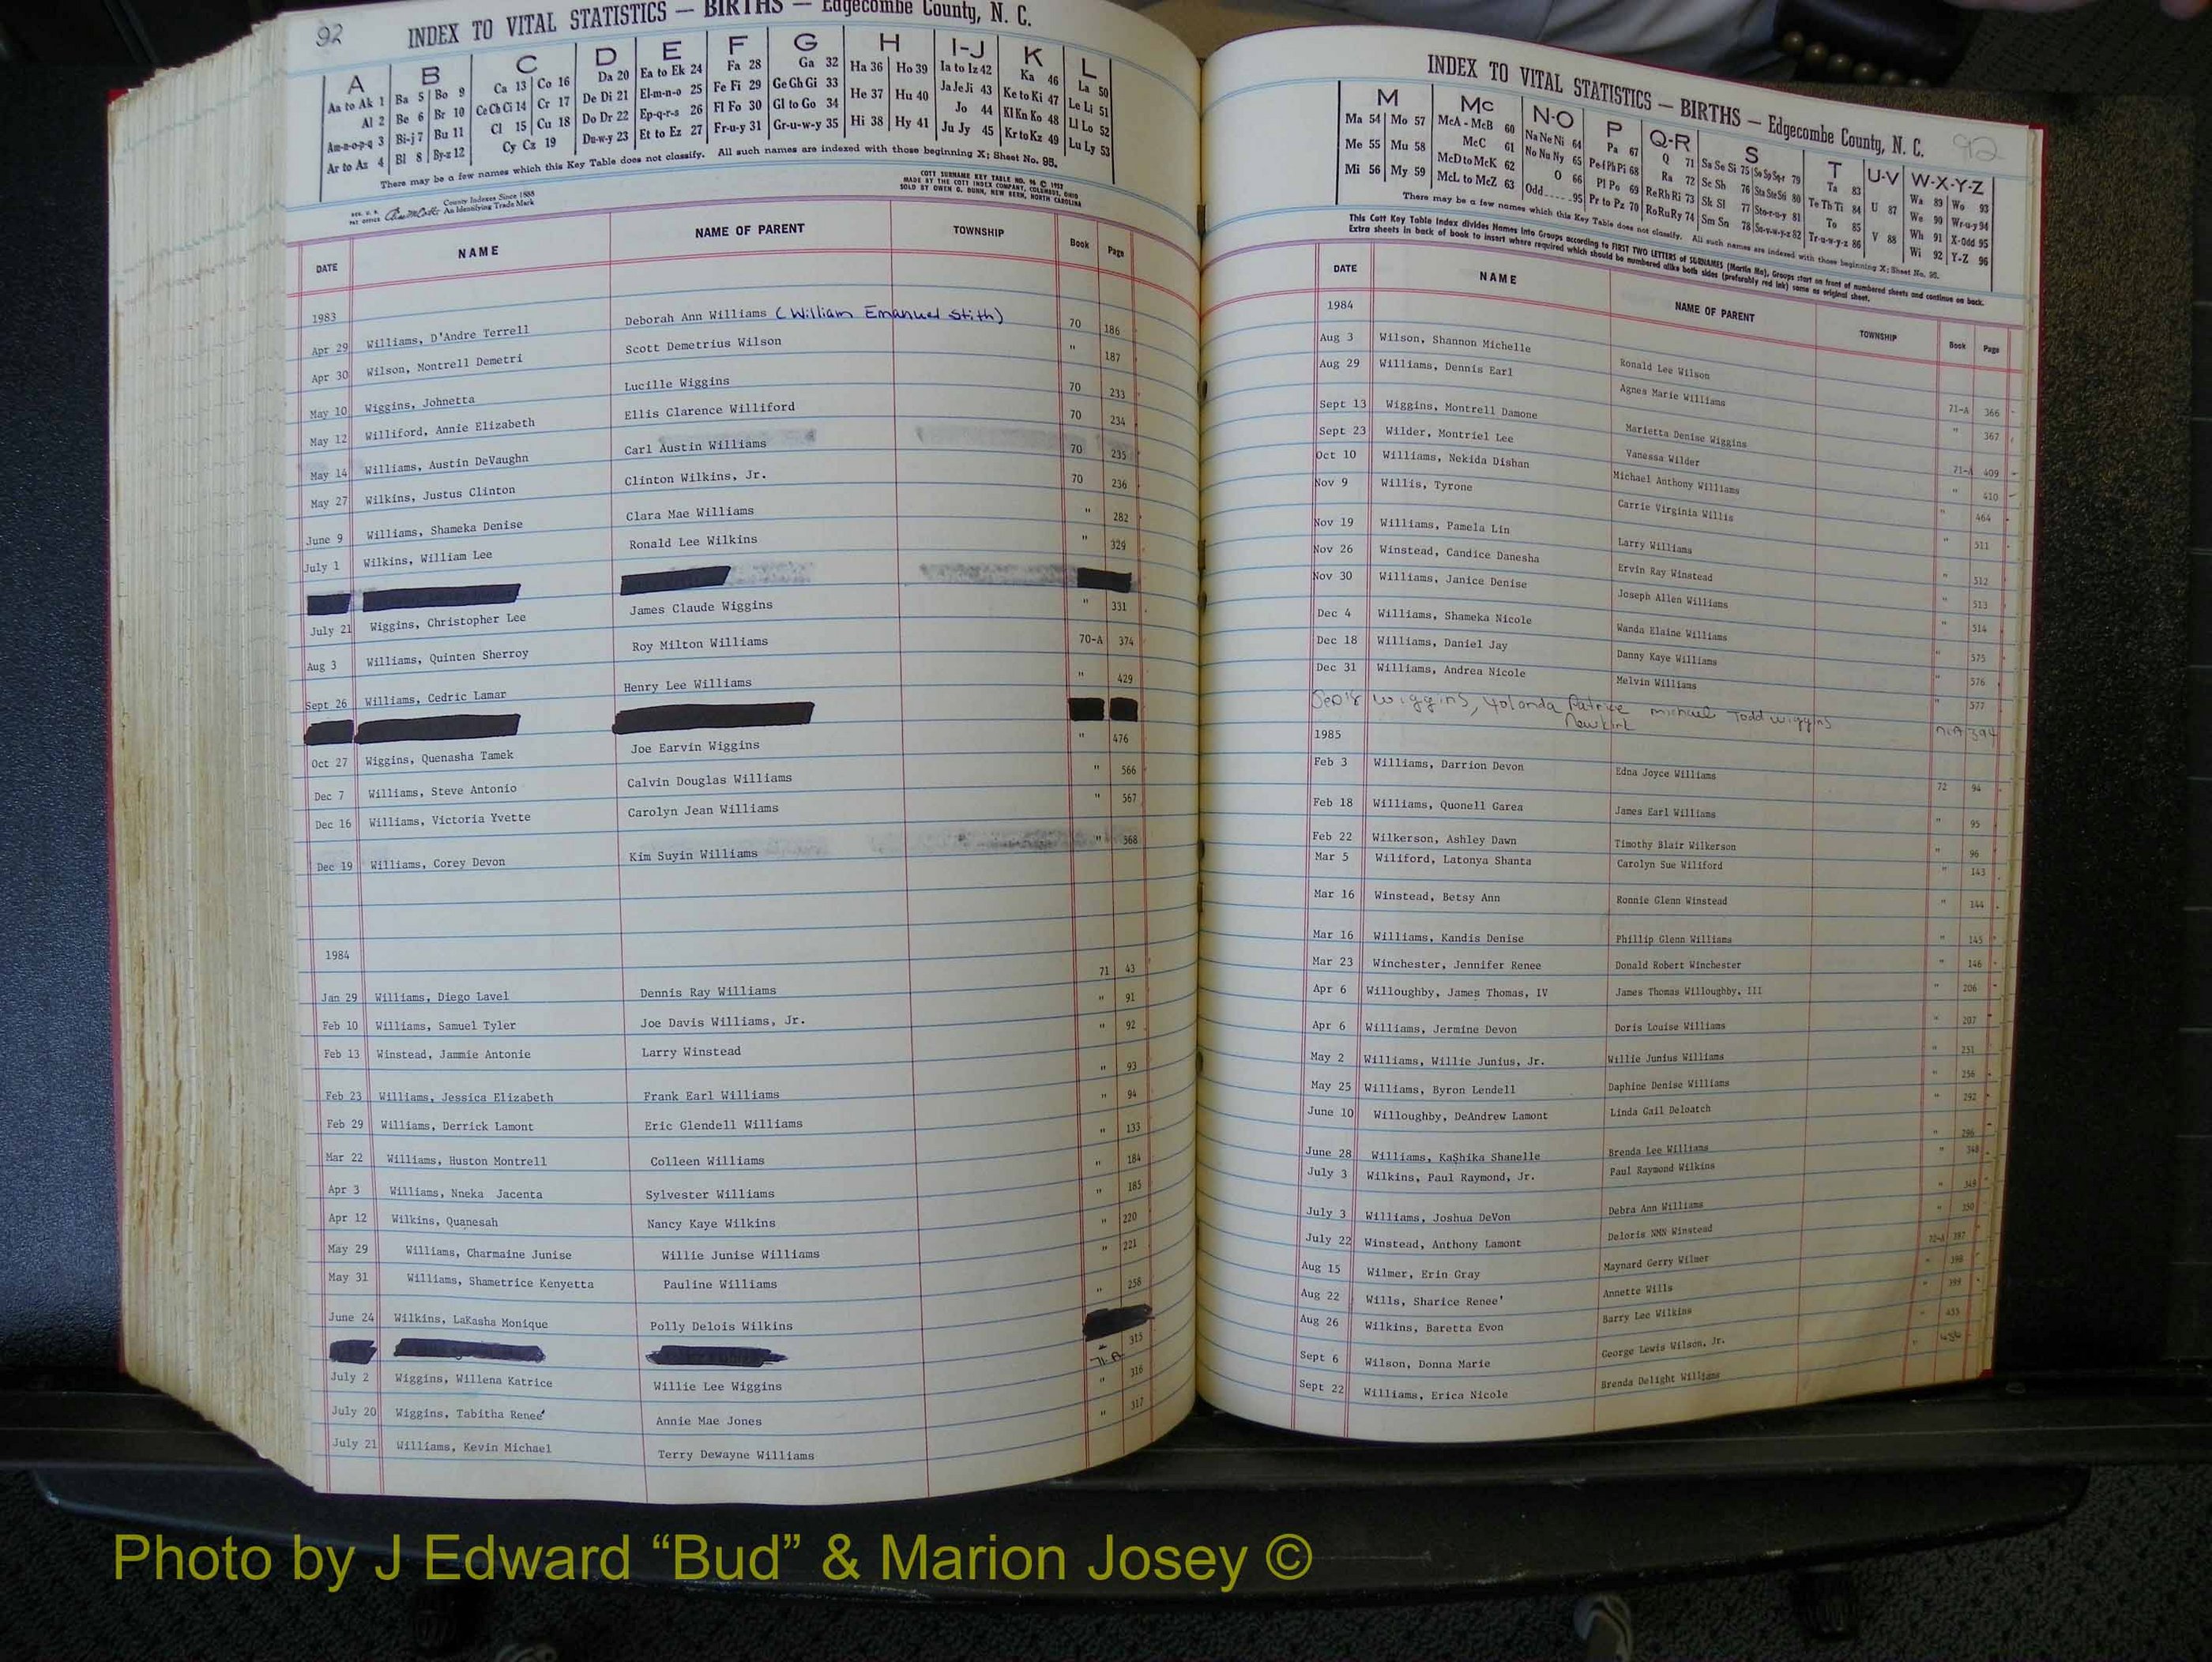 92
INDEX TO VITAL STATISTICS — BIRTHS — Edgecombe County, N. C.
A B C D E F G H I-J K L
Aa to Ak 1 Ba 5 Bo 9 Ca 13 Co 16 Da 20 Ea to Ek 24 Fa 28 Ga 32 Ha 36 Ho 39 Ia to Iz 42 Ka 46 La 50
Al 2 Be 6 Br 10 Ce Ch Ci 14 Cr 17 De Di 21 El-m-n-o 25 Fe Fi 29 Ge Gh Gi 33 He 37 Hu 40 Ja Je Ji 43 Ke to Ki 47 Le Li 51
Am-n-o-p-q 3 Bi-j 7 Bu 11 Cl 15 Cu 18 Do Dr 22 Ep-q-r-s 26 Fl Fo 30 Gl to Go 34 Hi 38 Hy 41 Jo 44 Kl Kn Ko 48 Ll Lo 52
Ar to Az 4 Bl 8 By-z 12 Cy Cz 19 Du-w-y 23 Et to Ez 27 Fr-u-y 31 Gr-u-w-y 35 Ju Jy 45 Kr to Kz 49 Lu Ly 53
There may be a few names which this Key Table does not classify. All such names are indexed with those beginning X; Sheet No. 95.
REG. U. S. PAT OFFICE County Indexes Since 1888 An Identifying Trade Mark
COTT SURNAME KEY TABLE NO. 96 © 1957
MADE BY THE COTT INDEX COMPANY, COLUMBUS, OHIO
SOLD BY OWEN G. DUNN, NEW BERN, NORTH CAROLINA
DATE NAME NAME OF PARENT TOWNSHIP Book Page
1983
Apr 29 Williams, D'Andre Terrell Deborah Ann Williams (William Emanuel Stith) 70 186
Apr 30 Wilson, Montrell Demetri Scott Demetrius Wilson " 187
May 10 Wiggins, Johnetta Lucille Wiggins 70 233
May 12 Williford, Annie Elizabeth Ellis Clarence Williford 70 234
May 14 Williams, Austin DeVaughn Carl Austin Williams 70 235
May 27 Wilkins, Justus Clinton Clinton Wilkins, Jr. 70 236
June 9 Williams, Shameka Denise Clara Mae Williams " 282
July 1 Wilkins, William Lee Ronald Lee Wilkins " 329
July 21 Wiggins, Christopher Lee James Claude Wiggins " 331
Aug 3 Williams, Quinten Sherroy Roy Milton Williams 70-A 374
Sept 26 Williams, Cedric Lamar Henry Lee Williams " 429
Oct 27 Wiggins, Quenasha Tamek Joe Earvin Wiggins " 476
Dec 7 Williams, Steve Antonio Calvin Douglas Williams " 566
Dec 16 Williams, Victoria Yvette Carolyn Jean Williams " 567
Dec 19 Williams, Corey Devon Kim Suyin Williams " 568
1984
Jan 29 Williams, Diego Lavel Dennis Ray Williams 71 43
Feb 10 Williams, Samuel Tyler Joe Davis Williams, Jr. " 91
Feb 13 Winstead, Jammie Antonie Larry Winstead " 92
Feb 23 Williams, Jessica Elizabeth Frank Earl Williams " 93
Feb 29 Williams, Derrick Lamont Eric Glendell Williams " 94
Mar 22 Williams, Huston Montrell Colleen Williams " 133
Apr 3 Williams, Nneka Jacenta Sylvester Williams " 184
Apr 12 Wilkins, Quanesah Nancy Kaye Wilkins " 185
May 29 Williams, Charmaine Junise Willie Junise Williams " 220
May 31 Williams, Shametrice Kenyetta Pauline Williams " 221
June 24 Wilkins, LaKasha Monique Polly Delois Wilkins " 258
July 2 Wiggins, Willena Katrice Willie Lee Wiggins 71-A 315
July 20 Wiggins, Tabitha Renee' Annie Mae Jones " 316
July 21 Williams, Kevin Michael Terry Dewayne Williams " 317
INDEX TO VITAL STATISTICS — BIRTHS — Edgecombe County, N. C. 92
M Mc N-O P Q-R S T U-V W-X-Y-Z
Ma 54 Mo 57 McA - McB 60 Na Ne Ni 64 Pa 67 Q 71 Sa Se Si 75 So Sp Sq-r 79 Ta 83 U 87 Wa 89 Wo 93
Me 55 Mu 58 McC 61 No Nu Ny 65 Pe-f Ph Pi 68 Ra 72 Sc Sh 76 Sta Ste Sti 80 Te Th Ti 84 V 88 We 90 Wr-u-y 94
Mi 56 My 59 McD to McK 62 O 66 Pl Po 69 Re Rh Ri 73 Sk Sl 77 Sto-r-u-y 81 To 85 Wh 91 X-Odd 95
McL to McZ 63 Odd 95 Pr to Pz 70 Ro Ru Ry 74 Sm Sn 78 Su-v-w-y-z 82 Tr-u-w-y-z 86 Wi 92 Y-Z 96
There may be a few names which this Key Table does not classify. All such names are indexed with those beginning X; Sheet No. 95.
This Cott Key Table Index divides Names into Groups according to FIRST TWO LETTERS of SURNAMES (Martin Ma), Groups start on front of numbered sheets and continue on back.
Extra sheets in back of book to insert where required which should be numbered alike both sides (preferably red ink) same as original sheet.
DATE NAME NAME OF PARENT TOWNSHIP Book Page
1984
Aug 3 Wilson, Shannon Michelle Ronald Lee Wilson 71-A 366
Aug 29 Williams, Dennis Earl Agnes Marie Williams " 367
Sept 13 Wiggins, Montrell Damone Marietta Denise Wiggins 71-A 409
Sept 23 Wilder, Montriel Lee Vanessa Wilder " 410
Oct 10 Williams, Nekida Dishan Michael Anthony Williams " 464
Nov 9 Willis, Tyrone Carrie Virginia Willis " 511
Nov 19 Williams, Pamela Lin Larry Williams " 512
Nov 26 Winstead, Candice Danesha Ervin Ray Winstead " 513
Nov 30 Williams, Janice Denise Joseph Allen Williams " 514
Dec 4 Williams, Shameka Nicole Wanda Elaine Williams " 575
Dec 18 Williams, Daniel Jay Danny Kaye Williams " 576
Dec 31 Williams, Andrea Nicole Melvin Williams " 577
Wiggins, Yolanda Patrice Newkirk Michael Todd Wiggins 71A 394
1985
Feb 3 Williams, Darrion Devon Edna Joyce Williams 72 94
Feb 18 Williams, Quonell Garea James Earl Williams " 95
Feb 22 Wilkerson, Ashley Dawn Timothy Blair Wilkerson " 96
Mar 5 Wiliford, Latonya Shanta Carolyn Sue Wiliford " 143
Mar 16 Winstead, Betsy Ann Ronnie Glenn Winstead " 144
Mar 16 Williams, Kandis Denise Phillip Glenn Williams " 145
Mar 23 Winchester, Jennifer Renee Donald Robert Winchester " 146
Apr 6 Willoughby, James Thomas, IV James Thomas Willoughby, III " 206
Apr 6 Williams, Jermine Devon Doris Louise Williams " 207
May 2 Williams, Willie Junius, Jr. Willie Junius Williams " 251
May 25 Williams, Byron Lendell Daphine Denise Williams " 256
June 10 Willoughby, DeAndrew Lamont Linda Gail Deloatch " 292
June 28 Williams, KaShika Shanelle Brenda Lee Williams " 296
July 3 Wilkins, Paul Raymond, Jr. Paul Raymond Wilkins " 348
July 3 Williams, Joshua DeVon Debra Ann Williams " 349
July 22 Winstead, Anthony Lamont Deloris NMN Winstead " 350
Aug 15 Wilmer, Erin Gray Maynard Gerry Wilmer 72-A 397
Aug 22 Wills, Sharice Renee' Annette Wills " 398
Aug 26 Wilkins, Baretta Evon Barry Lee Wilkins " 399
Sept 6 Wilson, Donna Marie George Lewis Wilson, Jr. " 455
Sept 22 Williams, Erica Nicole Brenda Delight Williams " 456
Photo by J Edward “Bud” & Marion Josey ©